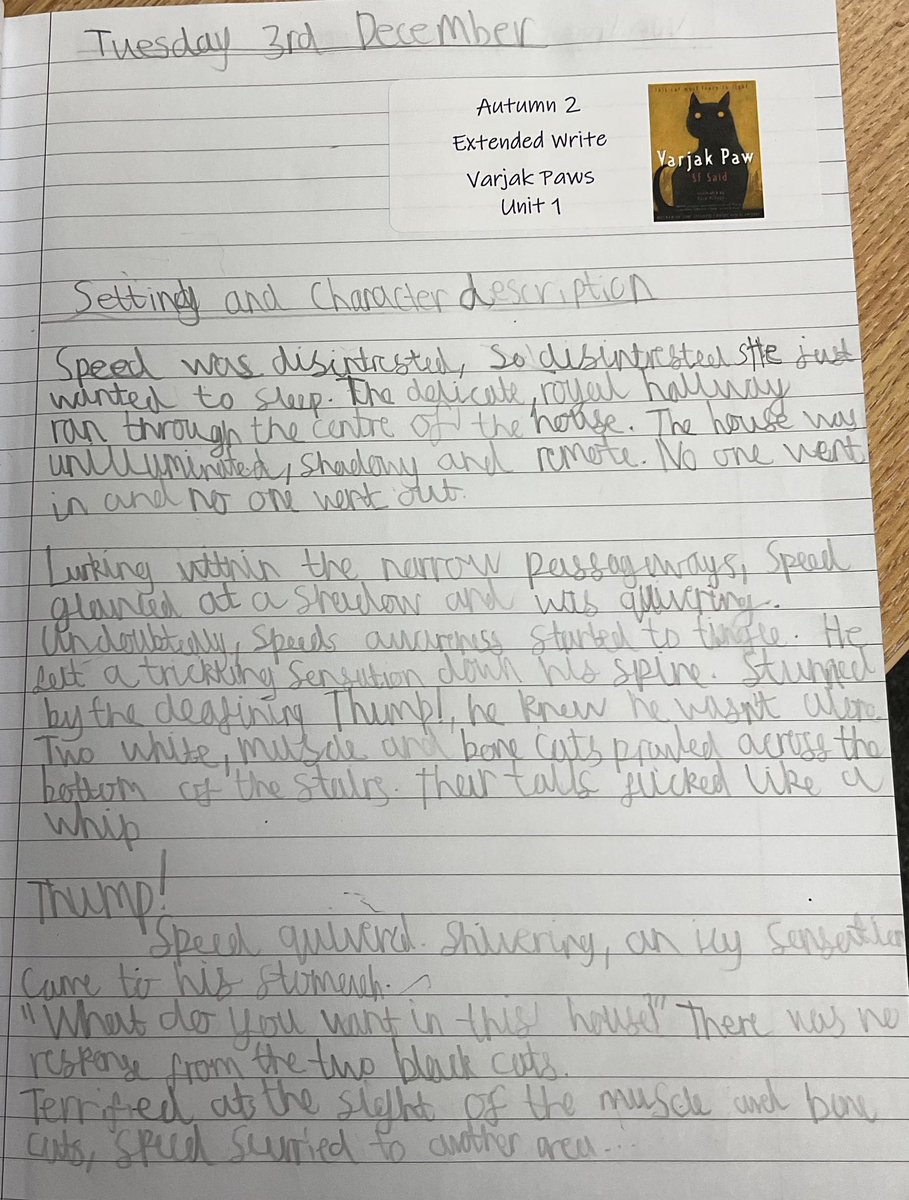 Tuesday 3rd December
Autumn 2
Extended Write
Varjak Paws
Unit 1
Varjak Paw
SF Said
Setting and Character description
Speed was disintrested, so disintrested he just
wanted to sleep. The delicate, royal hallway
ran through the centre of the house. The house was
unilluminated, shadowy and remote. No one went
in and no one went out.
Lurking within the narrow passageways, Speed
glanced at a shadow and was quivering.
Undoubtedly, Speeds awareness started to tingle. He
felt a trickking sensation down his spine. Stunned
by the deafining Thump!, he knew he wasn't alone.
Two white, muscle and bone cats prowled across the
bottom of the stairs. Their tails flicked like a
whip
Thump!
Speed quivered. Shivering, an icy sensation
came to his stomach.
"What do you want in this house!" There was no
response from the two black cats.
Terrified at the sight of the muscle and bone
cats, Speed scurried to another area...